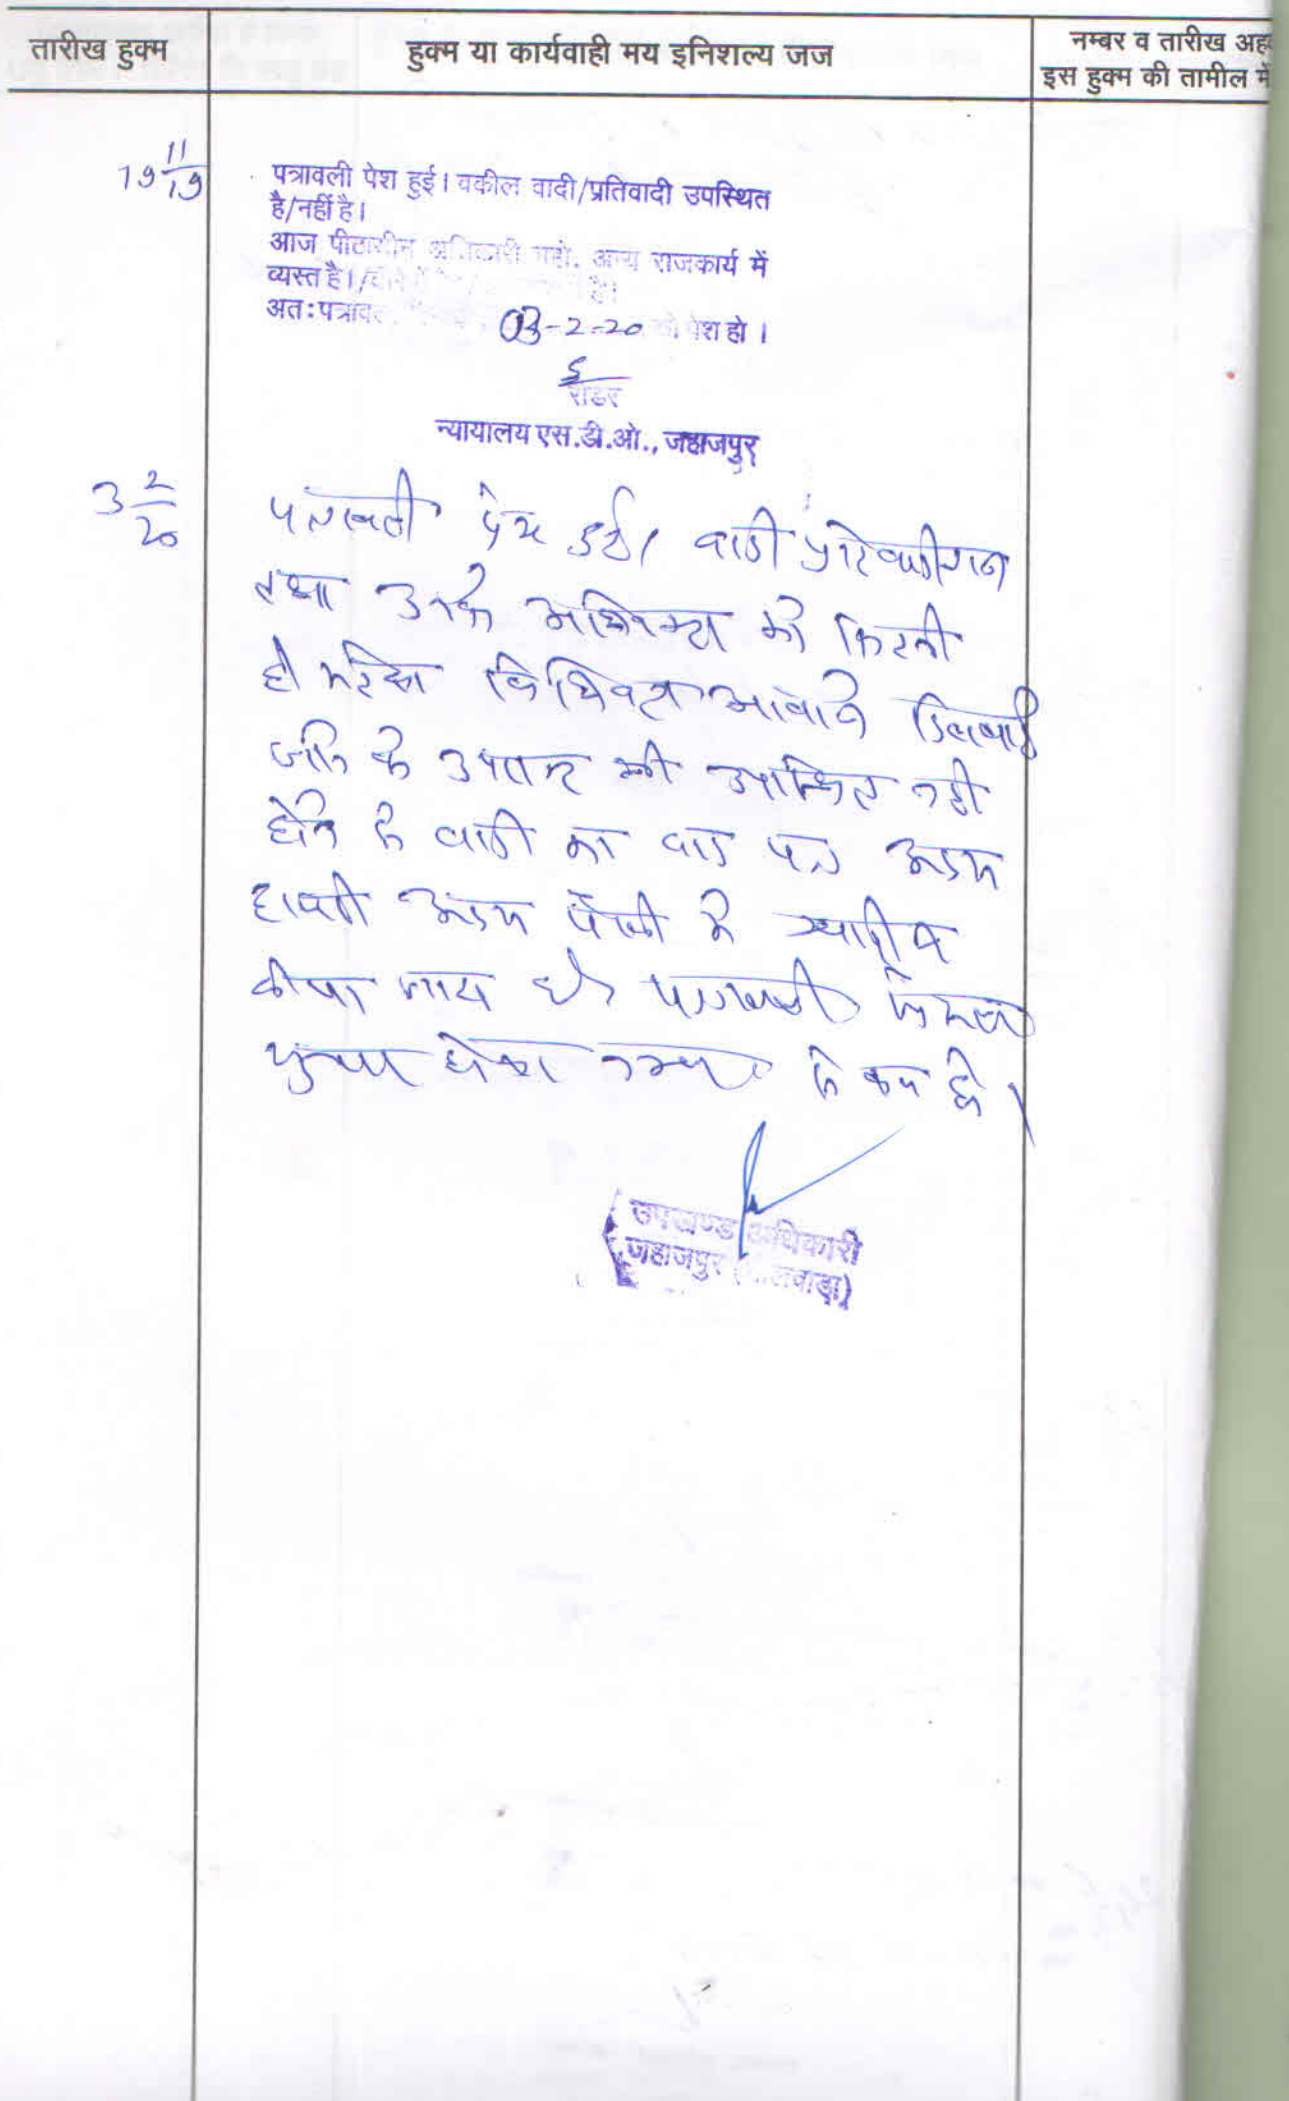 तारीख हुक्म
हुक्म या कार्यवाही मय इनिशल्य जज
नम्बर व तारीख अह
इस हुक्म की तामील में
19 11/19
पत्रावली पेश हुई। वकील वादी/प्रतिवादी उपस्थित
है/नहीं है।
आज पीठासीन अधिकारी महो. अन्य राजकार्य में
व्यस्त है।/
अतः पत्रावली 03-2-20 को पेश हो ।
रीडर
न्यायालय एस.डी.ओ., जहाजपुर
3 2/20
पत्रावली पेश हुई। वादी प्रतिवादीगण
तथा उनके अभिभाषक को
विधिवत आवाजे दिलवाई
जाने के उपरान्त भी उपस्थित नही
होने से वादी का वाद पत्र अदम
हाजरी अदम पैरवी मे खारीज
कीया जाता है पत्रावली फैसल
शुमार होकर नम्बर से कम हो।
उपखण्ड अधिकारी
जहाजपुर (भीलवाड़ा)